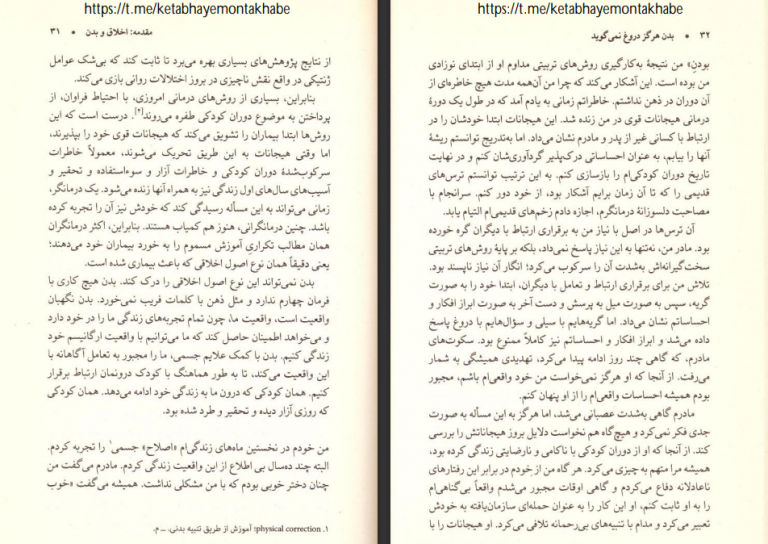 https://t.me/ketabhayemontakhabe
مقدمه: اخلاق و بدن • ۳۱
از نتایج پژوهش‌های بسیاری بهره می‌برد تا ثابت کند که بی‌شک عوامل
ژنتیکی در واقع نقش ناچیزی در بروز اختلالات روانی بازی می‌کند.
بنابراین، بسیاری از روش‌های درمانی امروزی، با احتیاط فراوان، از
پرداختن به موضوع دوران کودکی طفره می‌روند[۴]. درست است که این
روش‌ها ابتدا بیماران را تشویق می‌کند که هیجانات قوی خود را بپذیرند،
اما وقتی هیجانات به این طریق تحریک می‌شوند، معمولاً خاطرات
سرکوب‌شدهٔ دوران کودکی و خاطرات آزار و سوءاستفاده و تحقیر و
آسیب‌های سال‌های اول زندگی نیز به همراه آنها زنده می‌شود. یک درمانگر،
زمانی می‌تواند به این مسأله رسیدگی کند که خودش نیز آن را تجربه کرده
باشد. چنین درمانگرانی، هنوز هم کمیاب هستند. بنابراین، اکثر درمانگران
همان مطالب تکراریِ آموزش مسموم را به خورد بیماران خود می‌دهند؛
یعنی دقیقاً همان نوع اصول اخلاقی که باعث بیماری شده است.
بدن نمی‌تواند این نوع اصول اخلاقی را درک کند. بدن هیچ کاری با
فرمان چهارم ندارد و مثل ذهن با کلمات فریب نمی‌خورد. بدن نگهبان
واقعیت است، واقعیت ما، چون تمام تجربه‌های زندگی ما را در خود دارد
و می‌خواهد اطمینان حاصل کند که ما می‌توانیم با واقعیت ارگانیسم خود
زندگی کنیم. بدن با کمک علایم جسمی، ما را مجبور به تعامل آگاهانه با
این واقعیت می‌کند، تا به طور هماهنگ با کودک درونمان ارتباط برقرار
کنیم. همان کودکی که درون ما به زندگی خود ادامه می‌دهد. همان کودکی
که روزی آزار دیده و تحقیر و طرد شده بود.
من خودم در نخستین ماه‌های زندگی‌ام «اصلاح» جسمی¹ را تجربه کردم.
البته چند ده‌سال بی اطلاع از این واقعیت زندگی کردم. مادرم می‌گفت من
چنان دختر خوبی بودم که با من مشکلی نداشت. همیشه می‌گفت «خوب
۱. physical correction؛ آموزش از طریق تنبیه بدنی. ــ م.
https://t.me/ketabhayemontakhabe
۳۲ • بدن هرگز دروغ نمی‌گوید
بودن» من نتیجهٔ به‌کارگیری روش‌های تربیتی مداوم او از ابتدای نوزادی
من بوده است. این آشکار می‌کند که چرا من آن‌همه مدت هیچ خاطره‌ای از
آن دوران در ذهن نداشتم. خاطراتم زمانی به یادم آمد که در طول یک دورهٔ
درمانی هیجانات قوی در من زنده شد. این هیجانات ابتدا خودشان را در
ارتباط با کسانی غیر از پدر و مادرم نشان می‌داد. اما به‌تدریج توانستم ریشهٔ
آنها را بیابم، به عنوان احساساتی درک‌پذیر گردآوری‌شان کنم و در نهایت
تاریخ دوران کودکی‌ام را بازسازی کنم. به این ترتیب توانستم ترس‌های
قدیمی را که تا آن زمان برایم آشکار بود، از خود دور کنم. سرانجام با
مصاحبت دلسوزانهٔ درمانگرم، اجازه دادم زخم‌های قدیمی‌ام التیام یابد.
آن ترس‌ها در اصل با نیاز من به برقراری ارتباط با دیگران گره خورده
بود. مادر من، نه‌تنها به این نیاز پاسخ نمی‌داد، بلکه بر پایهٔ روش‌های تربیتی
سخت‌گیرانه‌اش به‌شدت آن را سرکوب می‌کرد؛ انگار آن نیاز ناپسند بود.
تلاش من برای برقراری ارتباط و تعامل با دیگران، ابتدا خود را به صورت
گریه، سپس به صورت میل به پرسش و دست آخر به صورت ابراز افکار و
احساساتم نشان می‌داد. اما گریه‌هایم با سیلی و سؤال‌هایم با دروغ پاسخ
داده می‌شد و ابراز افکار و احساساتم نیز کاملاً ممنوع بود. سکوت‌های
مادرم، که گاهی چند روز ادامه پیدا می‌کرد، تهدیدی همیشگی به شمار
می‌رفت. از آنجا که او هرگز نمی‌خواست من خود واقعی‌ام باشم، مجبور
بودم همیشه احساسات واقعی‌ام را از او پنهان کنم.
مادرم گاهی به‌شدت عصبانی می‌شد، اما هرگز به این مسأله به صورت
جدی فکر نمی‌کرد و هیچ‌گاه هم نخواست دلایل بروز هیجاناتش را بررسی
کند. از آنجا که او از دوران کودکی با ناکامی و نارضایتی زندگی کرده بود،
همیشه مرا متهم به چیزی می‌کرد. هر گاه من از خودم در برابر این رفتارهای
ناعادلانه دفاع می‌کردم و گاهی اوقات مجبور می‌شدم واقعاً بی‌گناهی‌ام
را به او ثابت کنم، او این کار را به عنوان حمله‌ای سازمان‌یافته به خودش
تعبیر می‌کرد و مدام با تنبیه‌های بی‌رحمانه تلافی می‌کرد. او هیجانات را با